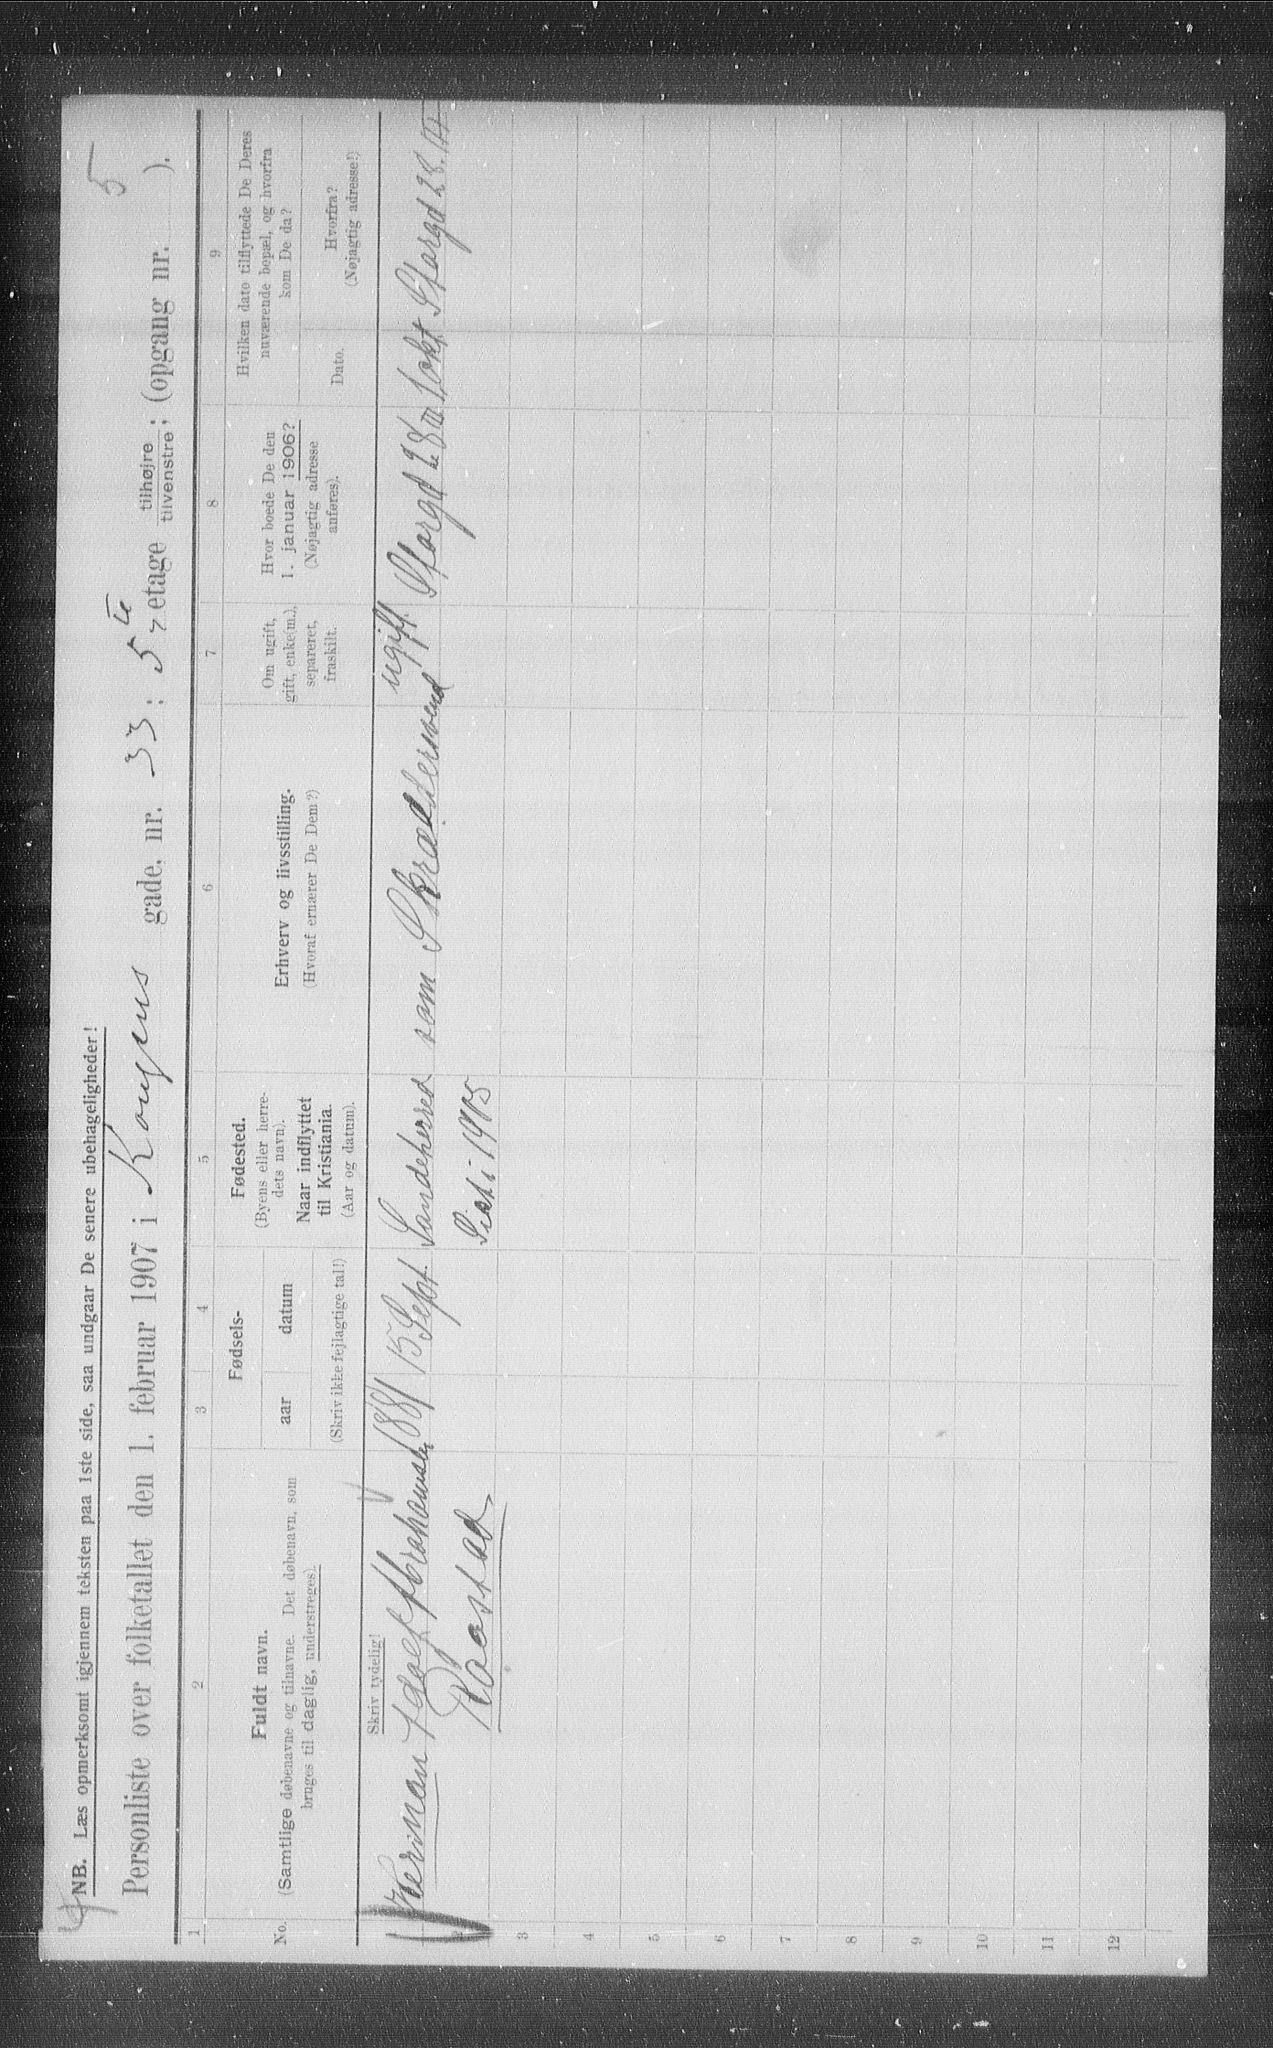 5
4
NB. Læs opmerksomt igjennem teksten paa 1ste side, saa undgaar De senere ubehageligheder!
Personliste over folketallet den 1. februar 1907 i Kongens gade, nr. 33; 5te etage tilhøjre / tilvenstre; (opgang nr. ).
1 2 3 4 5 6 7 8 9
No.
Fuldt navn.
(Samtlige døbenavne og tilnavne. Det døbenavn, som
bruges til daglig, understreges).
Fødsels-
aar datum
(Skriv ikke fejlagtige tal!)
Fødested.
(Byens eller herre-
dets navn).
Naar indflyttet
til Kristiania.
(Aar og datum).
Erhverv og livsstilling.
(Hvoraf ernærer De Dem?)
Om ugift,
gift, enke(m.),
separeret,
fraskilt.
Hvor boede De den
1. januar 1906?
(Nøjagtig adresse
anføres).
Hvilken dato tilflyttede De Deres
nuværende bopæl, og hvorfra
kom De da?
Dato.
Hvorfra?
(Nøjagtig adresse!)
Skriv tydelig!
Herman Adolf Abrahamsen 1881 15 Sept. Sandeherred som Skræddersvend ugift Storgd 28 III 1 okt Storgd 28.
Raastad, Sist i 1905
2
3
4
5
6
7
8
9
10
11
12